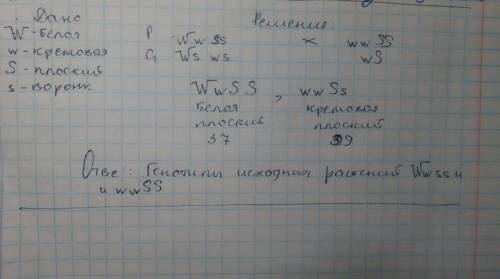 Дано
Решение:
W-белая
P WwSS × wwSS
w-кремовая
G Ws ws wS
S-плоский
s-воронк
WwSS, wwSs
белая кремовая
плоский плоский
37 39
Ответ: Генотипы исходных растений Wwss и
и wwSS